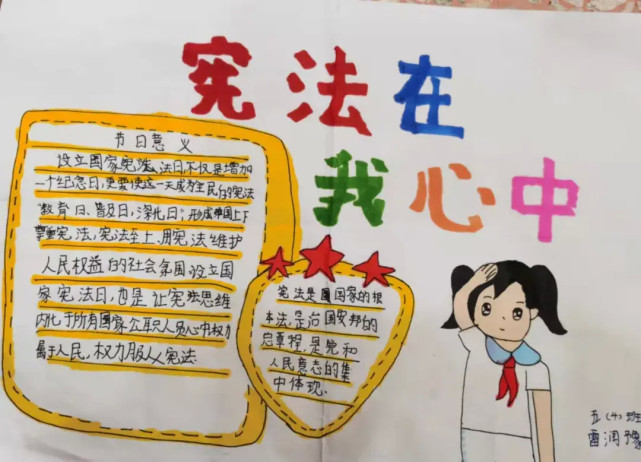 宪法在
我心中
节日意义
设立国家宪法法日,不仅是增加
一个纪念日,更要使这一天成为全民的宪法
"教育日、普及日,深化日;形成举国上下
尊重宪法,宪法至上、用宪法维护
人民权益的社会氛围,设立国
家宪法日,也是让宪法思维
内化于所有国家公职人员心中权力
属于人民,权力服从宪法.
宪法是国家的根
本法,是治国安邦的
总章程,是党和
人民意志的集
中体现.
五(4)班
雷润豫